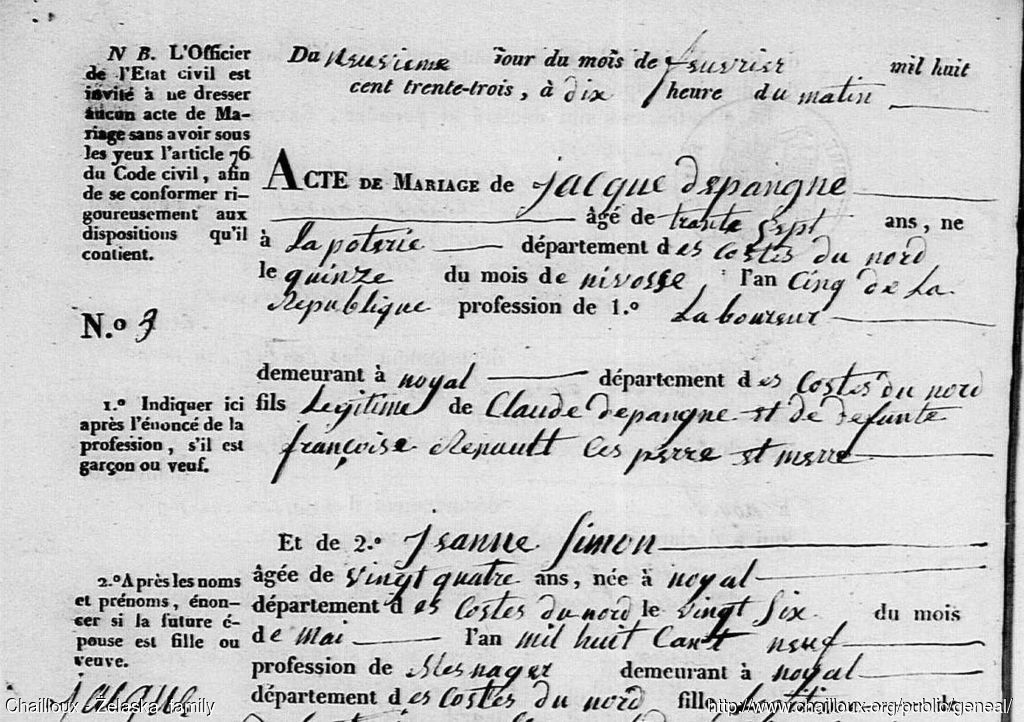 N B. L'Officier
de l'Etat civil est
invité à ne dresser
aucun acte de Ma-
riage sans avoir sous
les yeux l'article 76
du Code civil, afin
de se conformer ri-
goureusement aux
dispositions qu'il
contient.
Du neuvieme jour du mois de feuvrier mil huit
cent trente-trois, à dix heure du matin
ACTE DE MARIAGE de jacque depangne
âgé de trante sept ans, ne
à Lapoterie département des Costes du nord
le quinze du mois de nivosse l'an Cinq de La
Republique profession de 1.º Laboureur
N.º 3
demeurant à noyal département des Costes du nord
fils Legitime de Claude depangne et de defunte
françoise Renault Ces perre et merre
1.º Indiquer ici
après l'énoncé de la
profession, s'il est
garçon ou veuf.
Et de 2.º Jeanne Simon
âgée de vingt quatre ans, née à noyal
département des Costes du nord le vingt Six du mois
de Mai l'an mil huit Cant neuf
profession de Mesnager demeurant à noyal
département des Costes du nord fille
2.º Après les noms
et prénoms, énon-
cer si la future é-
pouse est fille ou
veuve.
jacque
Chailloux / Zelaska family
http://www.chailloux.org/public/geneal/